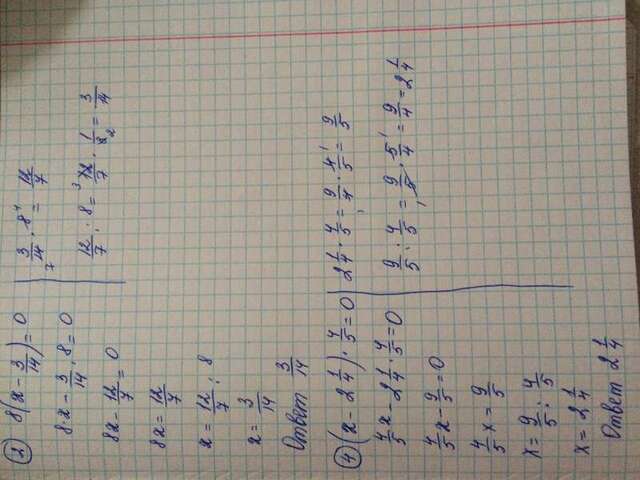 2) 8(x - 3/14) = 0
8·x - 3/14 · 8 = 0
8x - 12/7 = 0
8x = 12/7
x = 12/7 : 8
x = 3/14
Ответ 3/14
3/14 · 8 = 12/7
7 4
12/7 : 8 = 12/7 · 1/8 = 3/14
3 2
4) (x - 2 1/4) · 4/5 = 0
4/5 x - 2 1/4 · 4/5 = 0
4/5 x - 9/5 = 0
4/5 x = 9/5
x = 9/5 : 4/5
x = 2 1/4
Ответ 2 1/4
2 1/4 · 4/5 = 9/4 · 4/5 = 9/5
1 1
9/5 : 4/5 = 9/5 · 5/4 = 9/4 = 2 1/4
1 1